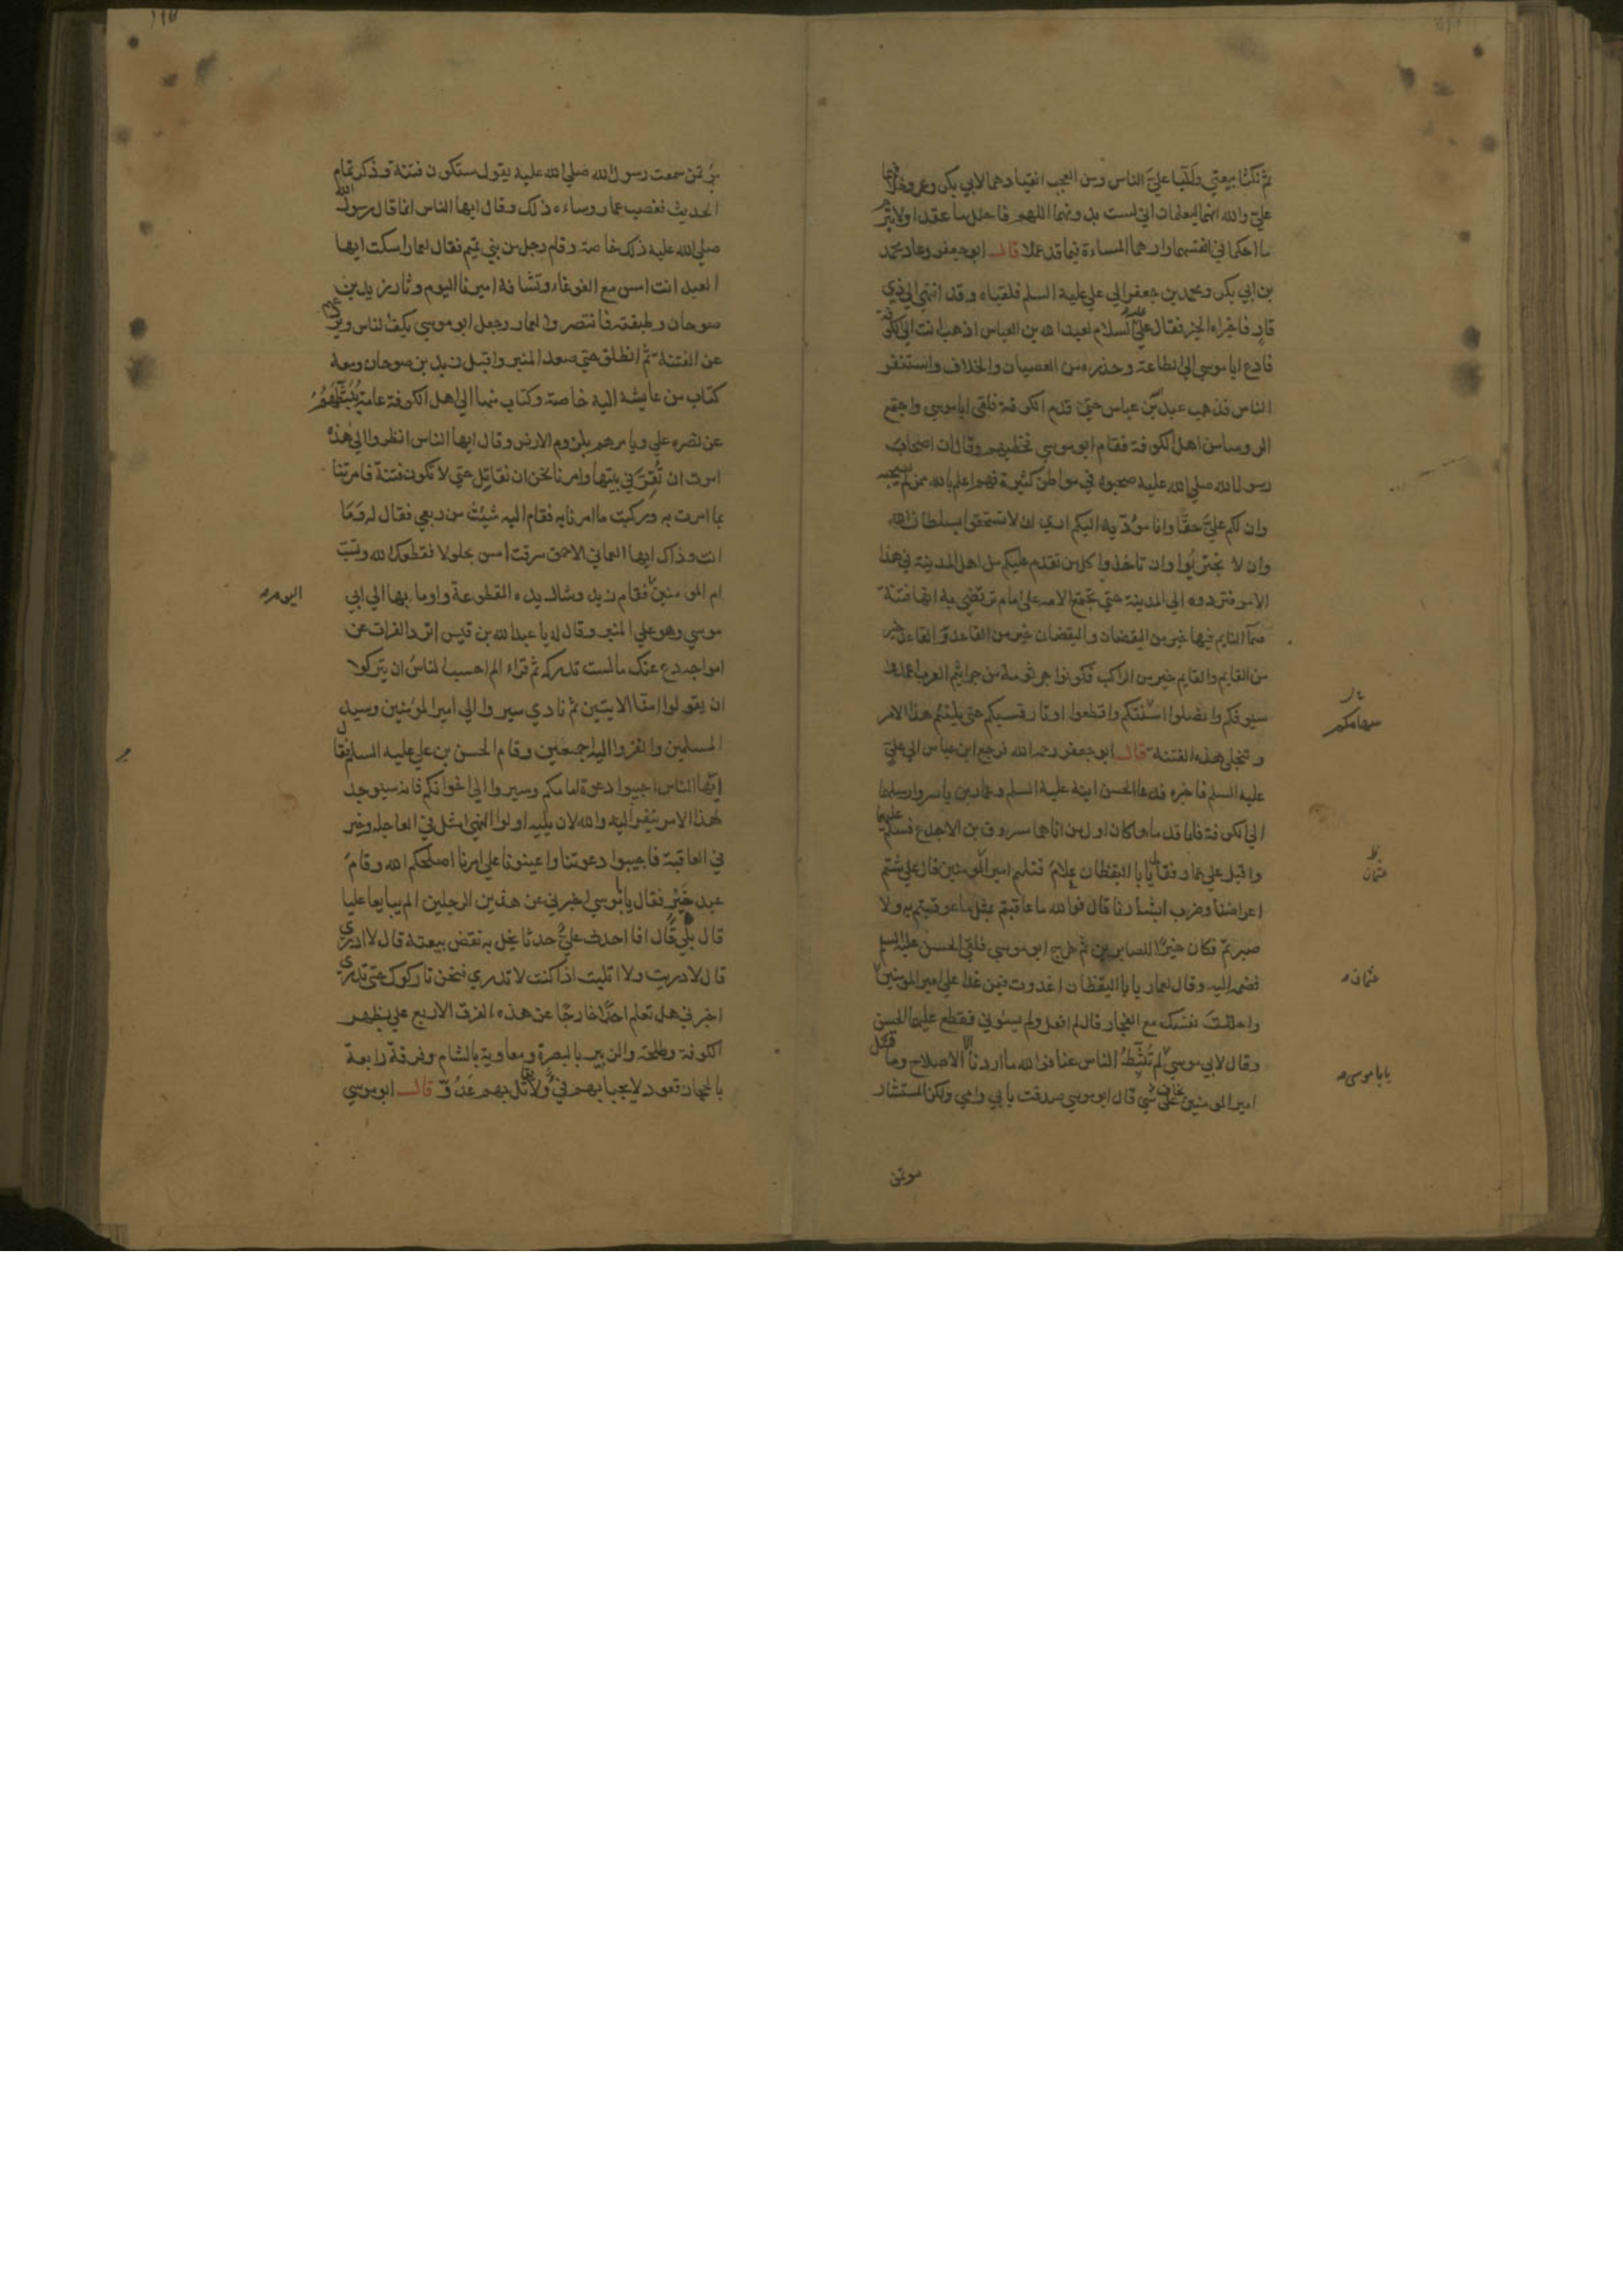 ثم نكثا بيعتي والبا علي الناس ومن العجب انقيادهما لابي بكر وعمر وخلافهما
علي والله انهما ليعلمان اني لست بدونهما اللهم فاحلل ما عقدا ولا تبرم
ما احكما في انفسهما وارهما المساءة فيما قد عملا قال ابو جعفر وعاد محمد
بن ابي بكر ومحمد بن جعفر الي علي عليه السلم فلقياه وقد انتهى الي ذي
قار فاخبراه الخبر فقال علي عليه السلام لعبد الله بن العباس اذهب انت الي الكوفة
فادع ابا موسي الي الطاعة وحذره من العصيان والخلاف واستنفر
الناس فذهب عبد الله بن عباس حتي قدم الكوفة فلقي ابا موسي واجتمع
الروسا من اهل الكوفة فقام ابو موسي فخطبهم وقال ان اصحاب
رسول الله صلي الله عليه صحبوه في مواطن كثيرة فهم اعلم بالله ممن لم يصحبه
وان لكم علي حقا وانا موديه اليكم اري ان لا تستخفوا بسلطان الله
وان لا تجتريوا وان تاخذوا كل من تقدم عليكم من اهل المدينة في هذا
الامر فتردوه الي المدينة حتي تجتمع الامه علي امام ترتضي به انها فتنة
صما النايم فيها خير من اليقضان واليقضان خير من القاعد والقاعد خير
من القايم والقايم خير من الراكب فكونوا جرثومة من جراثيم العرب اغمدوا
سيوفكم وانضلوا اسنتكم واقطعوا اوتار قسيكم حتي يلتئم هذا الامر
سهامكم
وتنجلي هذه الفتنة قال ابو جعفر رحمه الله فرجع ابن عباس الي علي
عليه السلم فاخبره فدعا الحسن ابنه عليه السلم وعمار بن ياسر وارسلهما
الي الكوفة فلما قدماها كان اول من اتاهما مسروق بن الاجدع فسلم عليهما
واقبل علي عمار فقال يا با اليقظان علام قتلتم امير المومنين قال علي شتم
عثمان
اعراضنا وضرب ابشارنا قال فوالله ما عاقبتم بمثل ما عوقبتم به ولا
صبرتم فكان خيرا للصابرين ثم خرج ابو موسي فلقي الحسن عليه السلم
فضمه اليه وقال لعمار يا با اليقظان اغدوت فيمن غدا علي امير المومنين
عثمان
واحللت نفسك مع الفجار قال لم افعل ولم يسوني فقطع عليهما الحسن
وقال لابي موسي لم تثبط الناس عنا فوالله ما اردنا الا الاصلاح وما مثل
يابا موسى
امير المومنين يخاف علي شي قال ابو موسي صدقت بابي وامي ولكن المستشار
موتمن
موتمن سمعت رسول الله صلي الله عليه يقول ستكون فتنة وذكر تمام
الحديث فغضب عمار وساءه ذلك وقال ايها الناس انما قال رسول الله
صلي الله عليه ذلك خاصة وقام رجل من بني تميم فقال لعمار اسكت ايها
العبد انت امس مع الغوغاء وتشافه اميرنا اليوم وثار زيد بن
صوحان وطبقته فانتصروا لعمار وجعل ابو موسي يكف الناس ويردعهم
عن الفتنة ثم انطلق حتي صعد المنبر واقبل زيد بن صوحان ومعه
كتاب من عايشه اليه خاصة وكتاب منها الي اهل الكوفة عامة يثبطهم
عن نصره علي ويامرهم بلزوم الارض وقال ايها الناس انظروا الي هذه
امرت ان تقر في بيتها وامرنا نحن ان نقاتل حتي لا تكون فتنة فامرتنا
بما امرت به وركبت ما امرنا به فقام اليه شبث من ربعي فقال له وما
انت وذاك ايها العماني الاحمق سرقت امس بجلولا فقطعك الله وتسب
ام المومنين فقام زيد وشال يده المقطوعة واوما بها الي ابي
اليومره
موسي وهو علي المنبر وقال له يا عبد الله بن قيس اترد الفرات عن
امواجه دع عنك مالست تدركه ثم قراء الم احسب الناس ان يتركوا
ان يقولوا امنا الايتين ثم نادي سيروا الي امير المومنين وسيد
المسلمين وانفروا اليه اجمعين وقام الحسن بن علي عليه السلم فقال
ايها الناس اجيبوا دعوة امامكم وسيروا الي اخوانكم فانه سيوجد
لهذا الامر من ينفر اليه والله لان يليه اولوا النهي امثل في العاجلة وخير
في العاقبة فاجيبوا دعوتنا واعينونا علي امرنا اصلحكم الله وقام
عبد خير فقال يا با موسي اخبرني عن هذين الرجلين الم يبايعا عليا
قال بلي قال افا احدث علي حدثا يحل به نقض بيعته قال لا ادري
قال لا دريت ولا اتليت اذا كنت لا تدري فنحن تاركوك حتي تدري
اخبرني هل تعلم احدا خارجا عن هذه الفرق الاربع علي بظهر
الكوفة وطلحة والزبير بالبصرة ومعاوية بالشام وفرقة رابعة
بالحجاز قعود لا يجبا بهم في ولا يقاتل بهم عدو قال ابو موسي